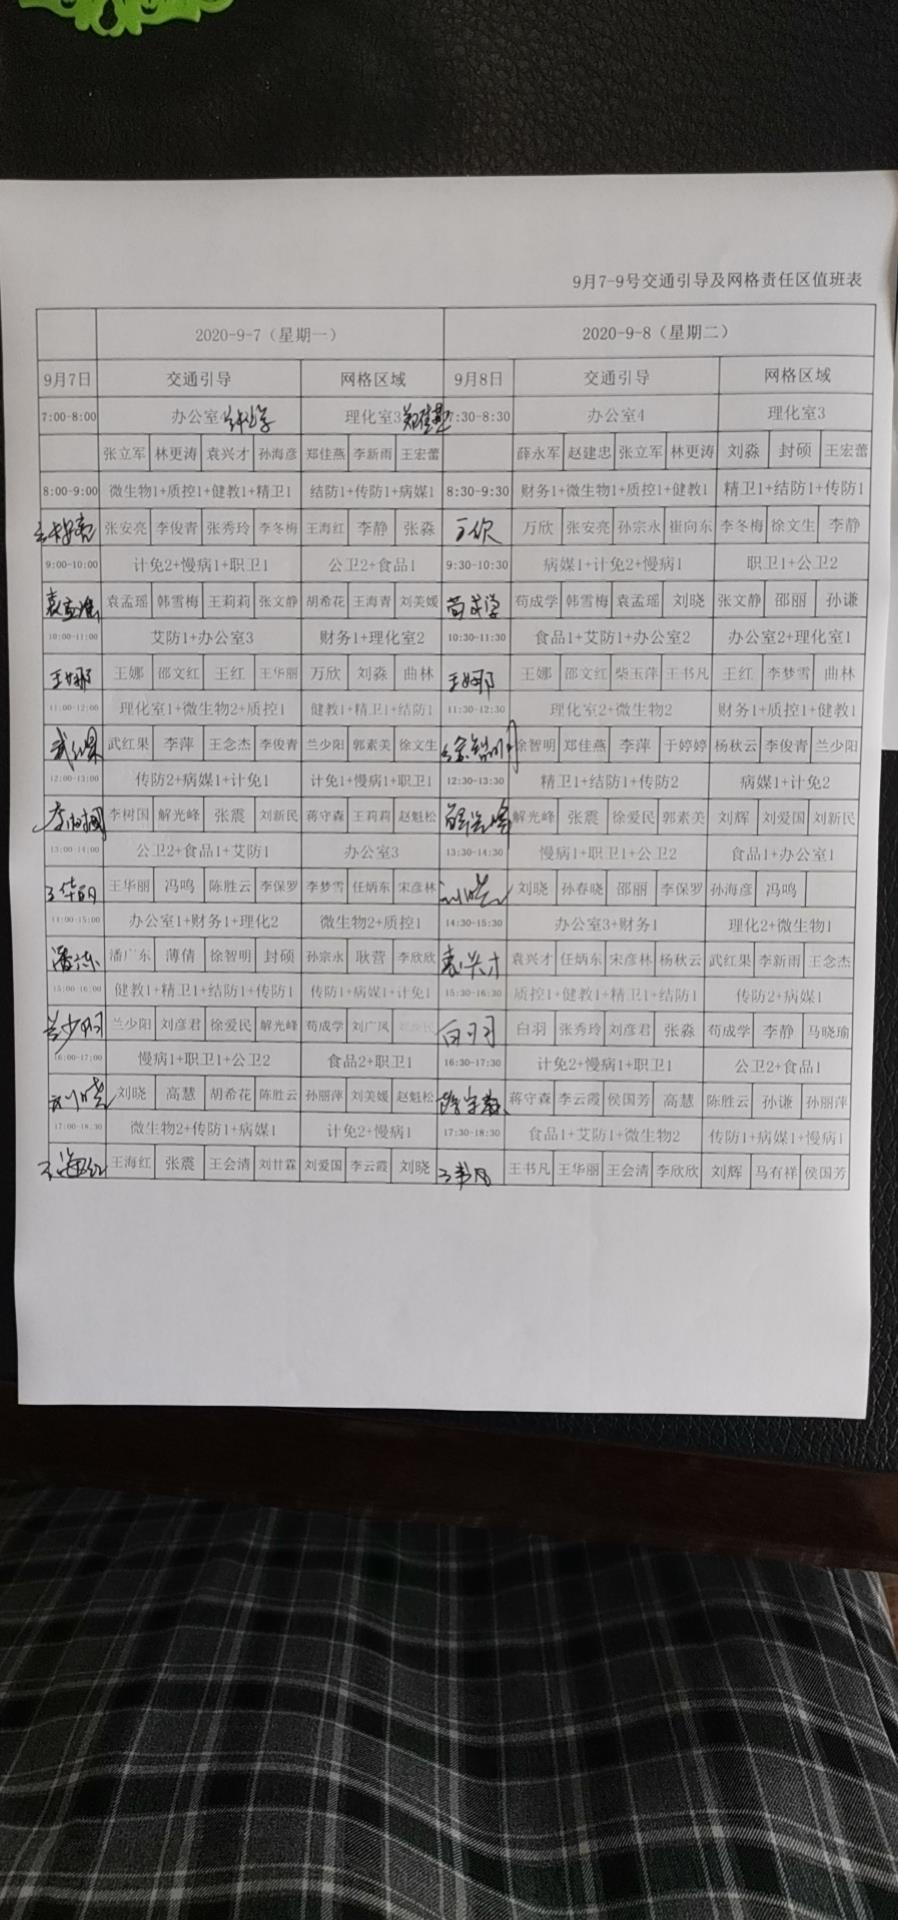 9月7-9号交通引导及网格责任区值班表
2020-9-7（星期一） 2020-9-8（星期二）
9月7日 交通引导 网格区域 9月8日 交通引导 网格区域
7:00-8:00 办公室 理化室3 7:30-8:30 办公室4 理化室3
张立军 林更涛 袁兴才 孙海彦 郑佳燕 李新雨 王宏蕾 薛永军 赵建忠 张立军 林更涛 刘淼 封硕 王宏蕾
8:00-9:00 微生物1+质控1+健教1+精卫1 结防1+传防1+病媒1 8:30-9:30 财务1+微生物1+质控1+健教1 精卫1+结防1+传防1
张安亮 李俊青 张秀玲 李冬梅 王海红 李静 张淼 万欣 万欣 张安亮 孙宗永 崔向东 李冬梅 徐文生 李静
9:00-10:00 计免2+慢病1+职卫1 公卫2+食品1 9:30-10:30 病媒1+计免2+慢病1 职卫1+公卫2
袁孟瑶 袁孟瑶 韩雪梅 王莉莉 张文静 胡希花 王海青 刘美媛 苟成学 苟成学 韩雪梅 袁孟瑶 刘晓 张文静 邵丽 孙谦
10:00-11:00 艾防1+办公室3 财务1+理化室2 10:30-11:30 食品1+艾防1+办公室2 办公室2+理化室1
王娜 王娜 邵文红 王红 王华丽 万欣 刘淼 曲林 王娜 王娜 邵文红 柴玉萍 王书凡 王红 李梦雪 曲林
11:00-12:00 理化室1+微生物2+质控1 健教1+精卫1+结防1 11:30-12:30 理化室2+微生物2 财务1+质控1+健教1
武红果 武红果 李萍 王念杰 李俊青 兰少阳 郭素美 徐文生 徐智明 徐智明 郑佳燕 李萍 于婷婷 杨秋云 李俊青 兰少阳
12:00-13:00 传防2+病媒1+计免1 计免1+慢病1+职卫1 12:30-13:30 精卫1+结防1+传防2 病媒1+计免2
李树国 李树国 解光峰 张震 刘新民 蒋守森 王莉莉 赵魁松 解光峰 解光峰 张震 徐爱民 郭素美 刘辉 刘爱国 刘新民
13:00-14:00 公卫2+食品1+艾防1 办公室3 13:30-14:30 慢病1+职卫1+公卫2 食品1+办公室1
王华丽 王华丽 冯鸣 陈胜云 李保罗 李梦雪 任炳东 宋彦林 刘晓 刘晓 孙春晓 邵丽 李保罗 孙海彦 冯鸣
11:00-15:00 办公室1+财务1+理化2 微生物2+质控1 14:30-15:30 办公室3+财务1 理化2+微生物1
潘广东 潘广东 薄倩 徐智明 封硕 孙宗永 耿营 李欣欣 袁兴才 袁兴才 任炳东 宋彦林 杨秋云 武红果 李新雨 王念杰
15:00-16:00 健教1+精卫1+结防1+传防1 传防1+病媒1+计免1 15:30-16:30 质控1+健教1+精卫1+结防1 传防2+病媒1
兰少阳 兰少阳 刘彦君 徐爱民 解光峰 苟成学 刘广凤 白羽 白羽 张秀玲 刘彦君 张淼 苟成学 李静 马晓瑜
16:00-17:00 慢病1+职卫1+公卫2 食品2+职卫1 16:30-17:30 计免2+慢病1+职卫1 公卫2+食品1
刘晓 刘晓 高慧 胡希花 陈胜云 孙丽萍 刘美媛 赵魁松 蒋守森 李云霞 侯国芳 高慧 陈胜云 孙谦 孙丽萍
17:00-18:30 微生物2+传防1+病媒1 计免2+慢病1 17:30-18:30 食品1+艾防1+微生物2 传防1+病媒1+慢病1
王海红 王海红 张震 王会清 刘廿霖 刘爱国 李云霞 刘晓 王书凡 王书凡 王华丽 王会清 李欣欣 刘辉 马有祥 侯国芳